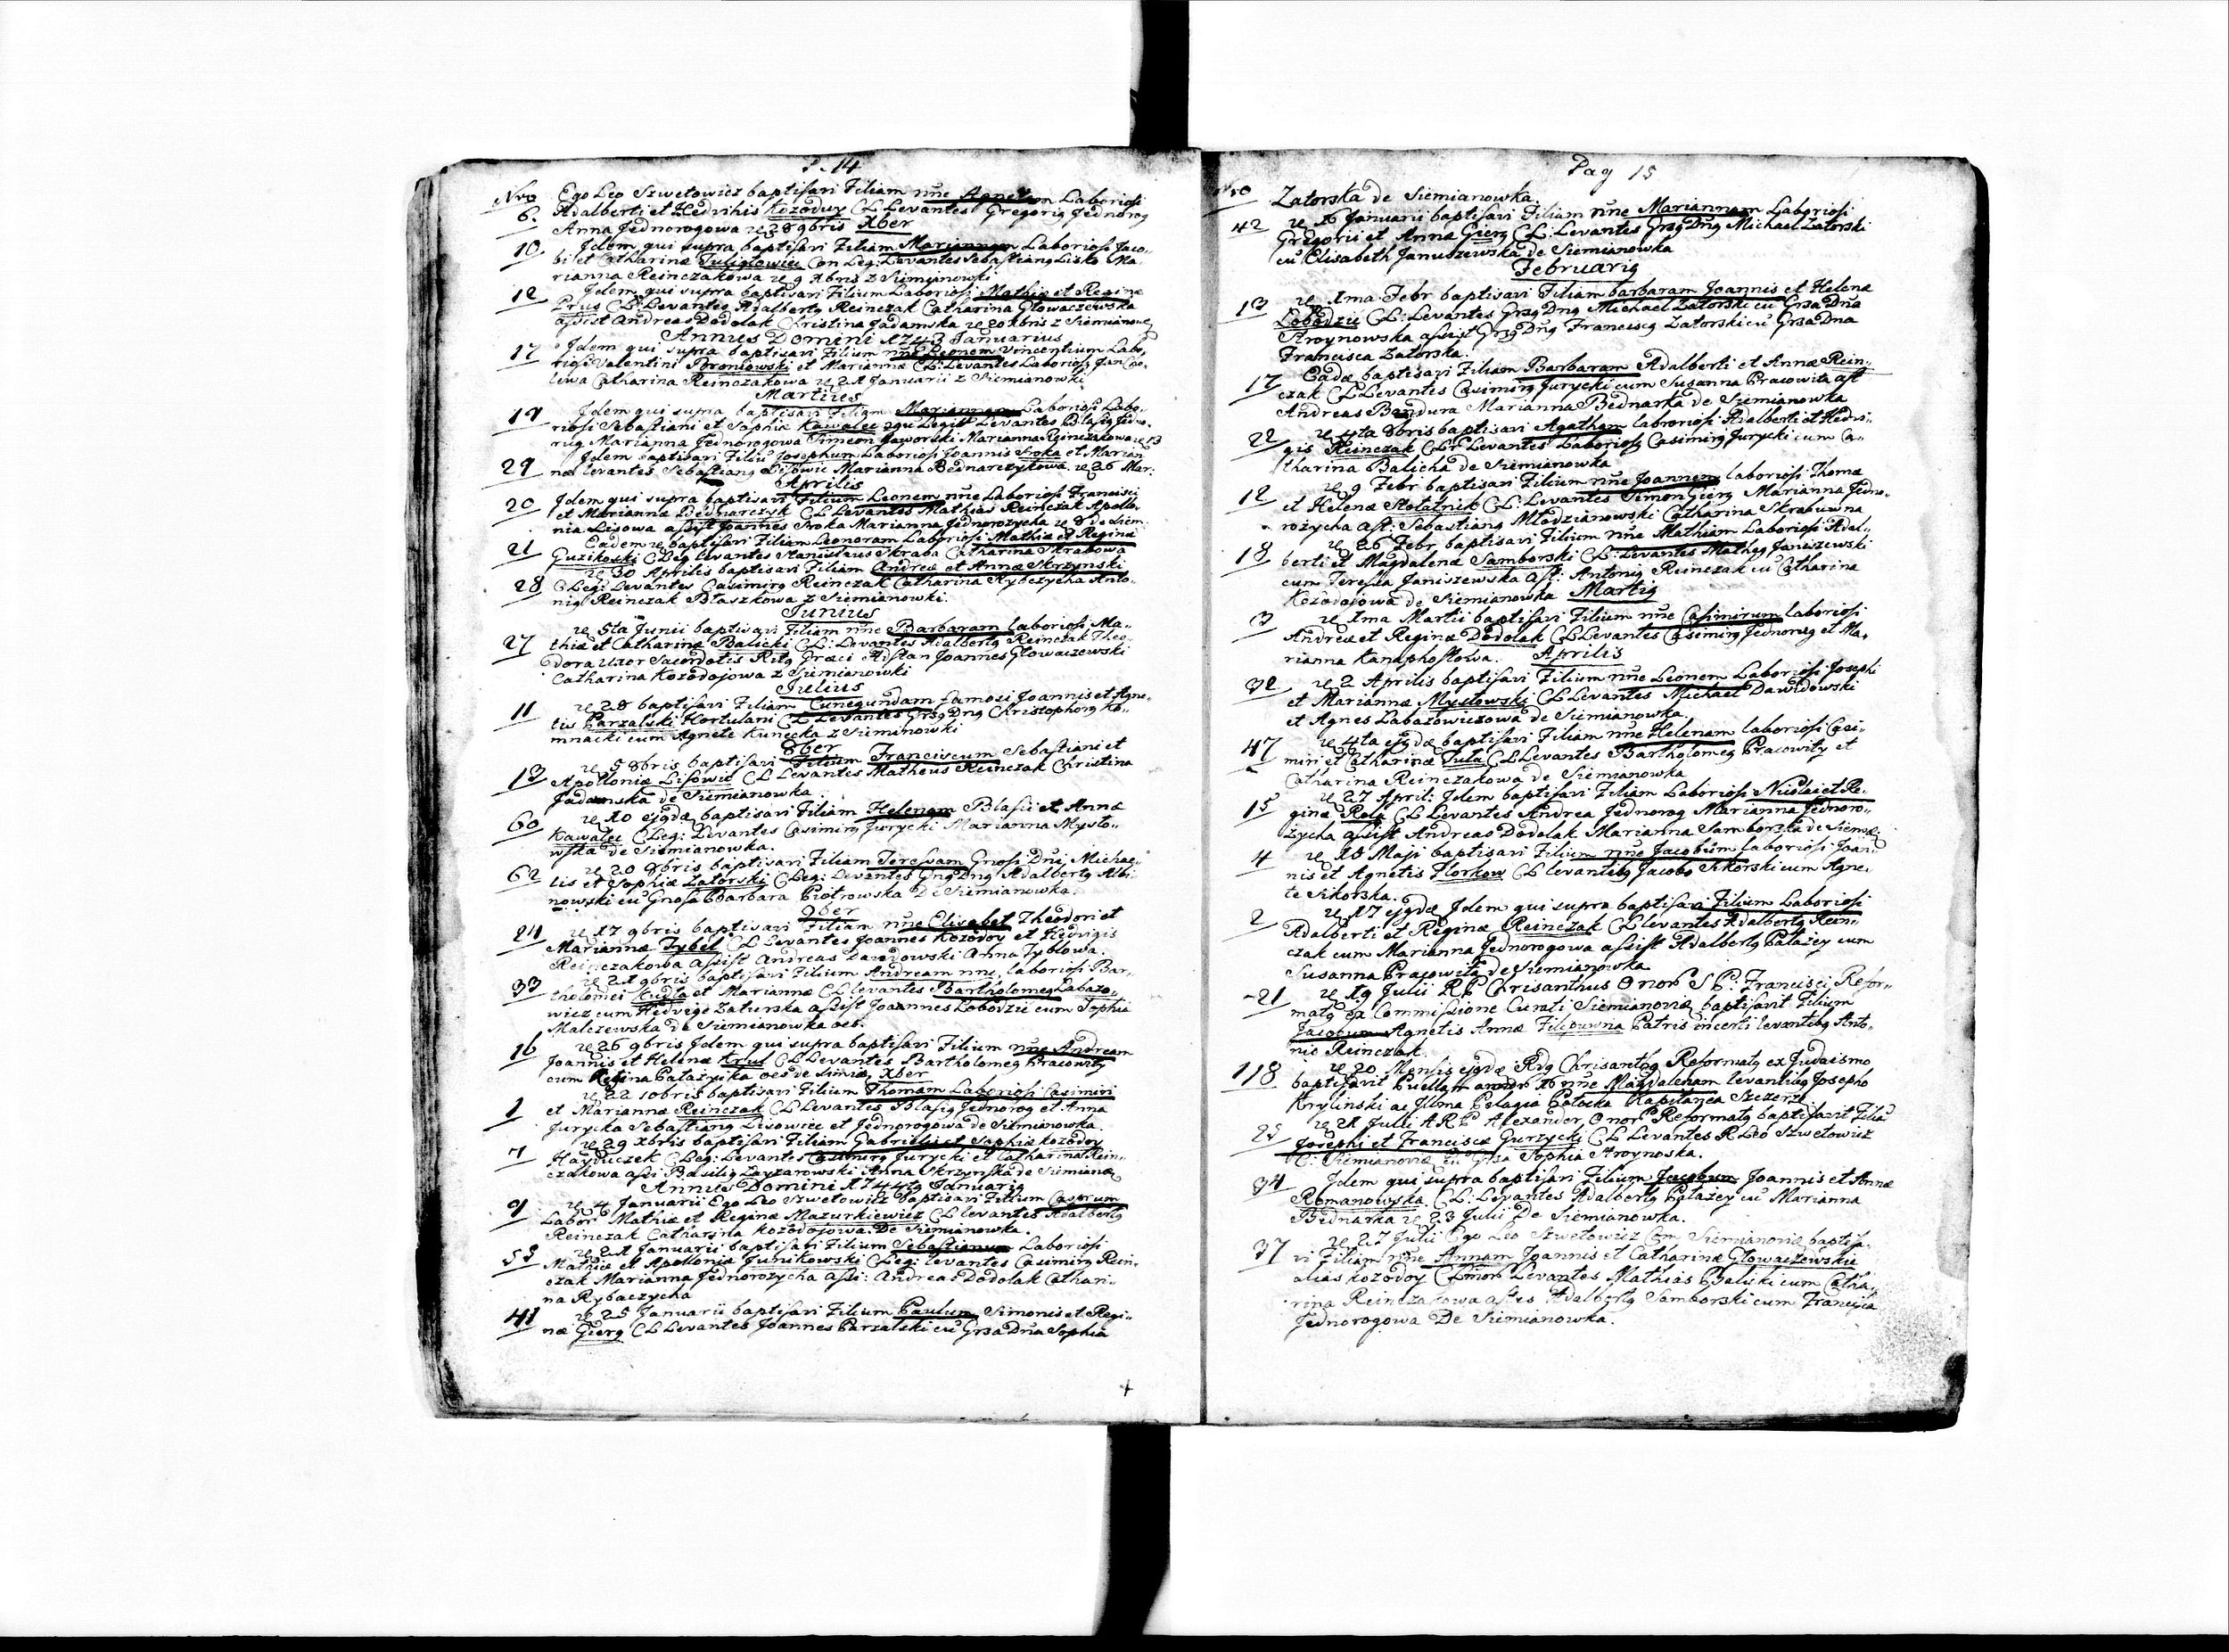 P. 14
Nro Ego Leo Szwetowicz baptisavi Filiam nne Agnetem Laboriosi
6. Adalberti et Hedvihis Kozoduy CL Levantes Gregorig Jednorog
Anna Jednorogowa 28 9bris Xber
10 Idem qui supra baptisavi Filiam Mariannam Laboriosi Jaco..
bi et Catharinæ Tuliglowicz Con Leg: Levantes Sebastiang Lisko Ma
rianna Reinczakowa 9 Xbris z Siemianowki
12 Idem qui supra baptisavi Filium Laboriosi Mathiæ et Reginæ
Prus CL: Levantes Adalbertg Reinczak Catharina Głowaczewska
assist Andreas Dodolak Christina Jadamska 20 Xbris z Siemianow
Annus Domini 1743 Januarius
17 Idem qui supra baptisavi Filium nne Leonem Vincentium Labo,
riosi Valentini Broniowski et Mariannæ CL: Levantes Laboriosg Jan
lewa Catharina Reinczakowa 21 Januarii z Siemianowki
Martius
19 Idem qui supra baptisavi Filiam Mariannam Laboriosi Labo..
riosi Sebastiani et Sophiæ Kawalec Legit Levantes Blasig Jedno.
rug Marianna Jednorogowa Simeon Jaworski Marianna Reinczakowa 13
Idem baptisavi Filiu Josephum Laboriosi Joannis Sroka et Marian
29 næ levantes Sebastiang Lisowic Marianna Bednarczykowa. 26 Mar:
Aprilis
20 Idem qui supra baptisavi Filium Leonem nne Laboriosi Francisci
et Mariannæ Bednarczyk CL Levantes Mathias Reinczak Apollo,
nia Lisowa assist Joannes Sroka Marianna Jednorozycha 8 de Siem.
21 Eadem baptisavi Filiam Leonoram Laboriosi Mathiæ et Reginæ
Guzikoski CLeg Levantes Stanislaus Skraba Catharina Skrabowa
30 Aprilis baptisavi Filiam Andreæ et Annæ Skrzynski
28 CLeg: Levantes Casimirg Reinczak Catharina Rybczycha Anto..
nig Reinczak Błaszkowa z Siemianowki.
Junius
5ta Junii baptisavi Filiam nne Barbaram laboriosi Ma..
27 thiæ et Catharinæ Balicki CL: Levantes Adalbertg Reinczak Theo
dora Uxor Sacerdotis Ritg Græci Adstan Joannes Głowaczewski
Catharina Kozodojowa z Siemianowki
Julius
11 28 baptisavi Filiam Cunegundam famosi Joannis et Agne..
tis Parzalski Hortulani CL Levantes Grsg Dng Christophorg Ko..
mnacki cum Agnete Kunecka z Siemianowki
8ber
5 8bris baptisavi Filium Franciscum Sebastiani et
13 Apolloniæ Lisowic CL Levantes Matheus Reinczak Christina
Jadamska de Siemianowka
10 ejgdæ baptisavi Filiam Helenam Blasii et Annæ
60 Kawalec CLeg: Levantes Casimirg Jurycki Marianna Mysło..
wska de Siemianowka.
20 8bris baptisavi Filiam Teresiam Gnosi Dni Michae..
62 lis et Sophiæ Zatorski CLeg: Levantes Gnsg Dng Adalbertg Albi
nowski cu Gnosa Barbara Piotrowska De Siemianowka.
9ber
24 17 9bris baptisavi Filiam nne Elisabet Theodori et
Mariannæ Tybel CL Levantes Joannes Kozodoy et Hedvigis
Reinczakowa Assist Andreas Dawidowski Anna Tyblowa.
21 9bris baptisavi Filium Andream nne, laboriosi Bar..
33 tholomei Kudla et Mariannæ CL levantes Bartholomeg Łabazo..
wicz cum Hedvige Zaturska assist Joannes Łobodzic cum Sophia
Malczewska de Siemianowka oes.
16 26 9bris Idem qui supra baptisavi Filium nne Andream
Joannis et Helenæ Krul CL Levantes Bartholomeg Pracowity
cum Regina Patazyika oes de Simia, Xber
22 10bris baptisavi Filium Thomam Laboriosi Casimiri
1 et Mariannæ Reinczak CL Levantes Blasig Jednorog et Anna
Jurycka Sebastiang Lisowicz et Jednorogowa de Siemianowka.
29 Xbris baptisavi Filiam Gabrielis et Sophiæ Kozodoy
7 Hayduczek CLeg: Levantes Casimirg Jurycki et Catharina Rein..
czakowa assi Basilig Zayzarowski Anna Skrzynska de Siemianow
Annus Domini 1744tg Januarig
9 4 Januarii Ego Leo Szwetowicz baptisavi Filium Casprum
Labor Mathiæ et Reginæ Mazurkiewicz CL levantes Adalbertg
Reinczak Catharina Kozodojowa De Siemianowka.
21 Januarii baptisavi Filium Sebastianum Laboriosi
53 Mathiæ et Apolloniæ Junikowski CLeg: levantes Casimirg Rein..
czak Marianna Jednorozycha assi: Andreas Dodolak Cathari..
na Rybaczycha
41 25 Januarii baptisavi Filium Paulum Simonis et Regi..
næ Gierg CL Levantes Joannes Parzalski cu Grsa Dna Sophia
Pag 15
Nro Zatorska de Siemianowka.
42 16 Januarii baptisavi Filiam nne Mariannam Laboriosi
Gregorii et Annæ Gierg CL: Levantes Grsg Dng Michael Zatorski
cu Elisabeth Januszewska de Siemianowka
Februarig
13 1ma Febr baptisavi Filiam barbaram Joannis et Helenæ
Łobodzic CL: Levantes Grsg Dng Michael Zatorski cu Grsa Dna
Stroynowska assist Grsg Dng Franciscg Zatorski cu Grsa Dna
Francisca Zatorska.
17 Eadæ baptisavi Filiam Barbaram Adalberti et Annæ Rein..
czak CL Levantes Casimirg Jurycki cum Susanna Pracowita ast
Andreas Bandura Marianna Bednarka de Siemianowka
22 4ta 8bris baptisavi Agatham laboriosi Adalberti et Hedvi..
gis Reinczak CL Levantes Laboriosg Casimirg Jurycki cum Ca..
tharina Balicka de Siemianowka
12 9 Febr baptisavi Filium nne Joannem laboriosi Thomæ
et Helenæ Stolatnik CL: Levantes Simon Gierg Marianna Jedno.
rożycha ast: Sebastiang Młodzianowski Catharina Skrabuwna
18 26 Febr baptisavi Filium nne Mathiam Laboriosi Adal..
berti et Magdalenæ Samborski CL: Levantes Matheg Janiszewski
cum Teresia Janiszewska ast: Antonig Reinczak cu Catharina
Kozodojowa de Siemianowka Martig
3 1ma Martii baptisavi Filium nne Casimirum laboriosi
Andreæ et Reginæ Dodolak CL Levantes Casimirg Jednorog et Ma,
rianna Kanaphostowa. Aprilis
32 2 Aprilis baptisavi Filium nne Leonem Laboriosi Josephi
et Mariannæ Mysłowski CL Levantes Michael Dawidowski
et Agnes Łabazowiczowa de Siemianowka.
47 4ta ejgdæ baptisavi Filiam nne Helenam laboriosi Casi..
miri et Catharinæ Tuta CL Levantes Bartholomeg Pracowity et
Catharina Reinczakowa de Siemianowka
15 27 April: Idem baptisavi Filiam Laboriosi Nicolai et Re..
ginæ Rola CL Levantes Andrea Jednorog Marianna Jednoro..
życha assist Andreas Dodolak Marianna Samborska de Siemia
4 18 Maji baptisavi Filium nne Jacobum laboriosi Joan..
nis et Agnetis Florkow CL levantibg Jacobo Sikorski cum Agne.
te Sikorska.
2 17 ejgdæ Idem qui supra baptisavi Filium Laboriosi
Adalberti et Reginæ Reinczak CL levantes Adalbertg Rein..
czak cum Marianna Jednorogowa assist Adalbertg Patażey cum
Susanna Pracowita de Siemianowka
21 19 Julii RP Chrisanthus Onor S P. Francisci Refor..
matg ex Commissione Curati Siemianoviæ baptisavit Filium
Jacobum Agnetis Annæ Filipuwna Patris incerti levantibg Anto,
nio Reinczak.
118 20 Mensis ejgdæ Rdg Chrisanthg Reformatg ex Judaismo
baptisavit Puellam annor 16 nne Magdalenam levantibg Josepho
Krylinski ac Illma Pelagia Potocka Kapitanea Szczerze
25 21 Julii A R P Alexander Onor Reformatg baptisavit Filiu
Josephi et Franciscæ Gurzycki CL Levantes R Leo Szwetowicz
C: Siemianoviæ cu Grsa Sophia Stroynoska.
34 Idem qui supra baptisavi Filium Jacobum Joannis et Annæ
Romanowska CL: Levantes Adalbertg Patażey cu Marianna
Bednarka 23 Julii De Siemianowka.
37 27 Julii Ego Leo Szwetowicz Com Siemianoviæ baptisa.
vi Filiam nne Annam Joannis et Catharinæ Głowaczewskie
alias Kozodoy CLmor Levantes Mathias Balicki cum Catha,
rina Reinczakowa astes Adalbertg Samborski cum Francisca
Jednorogowa De Siemianowka.